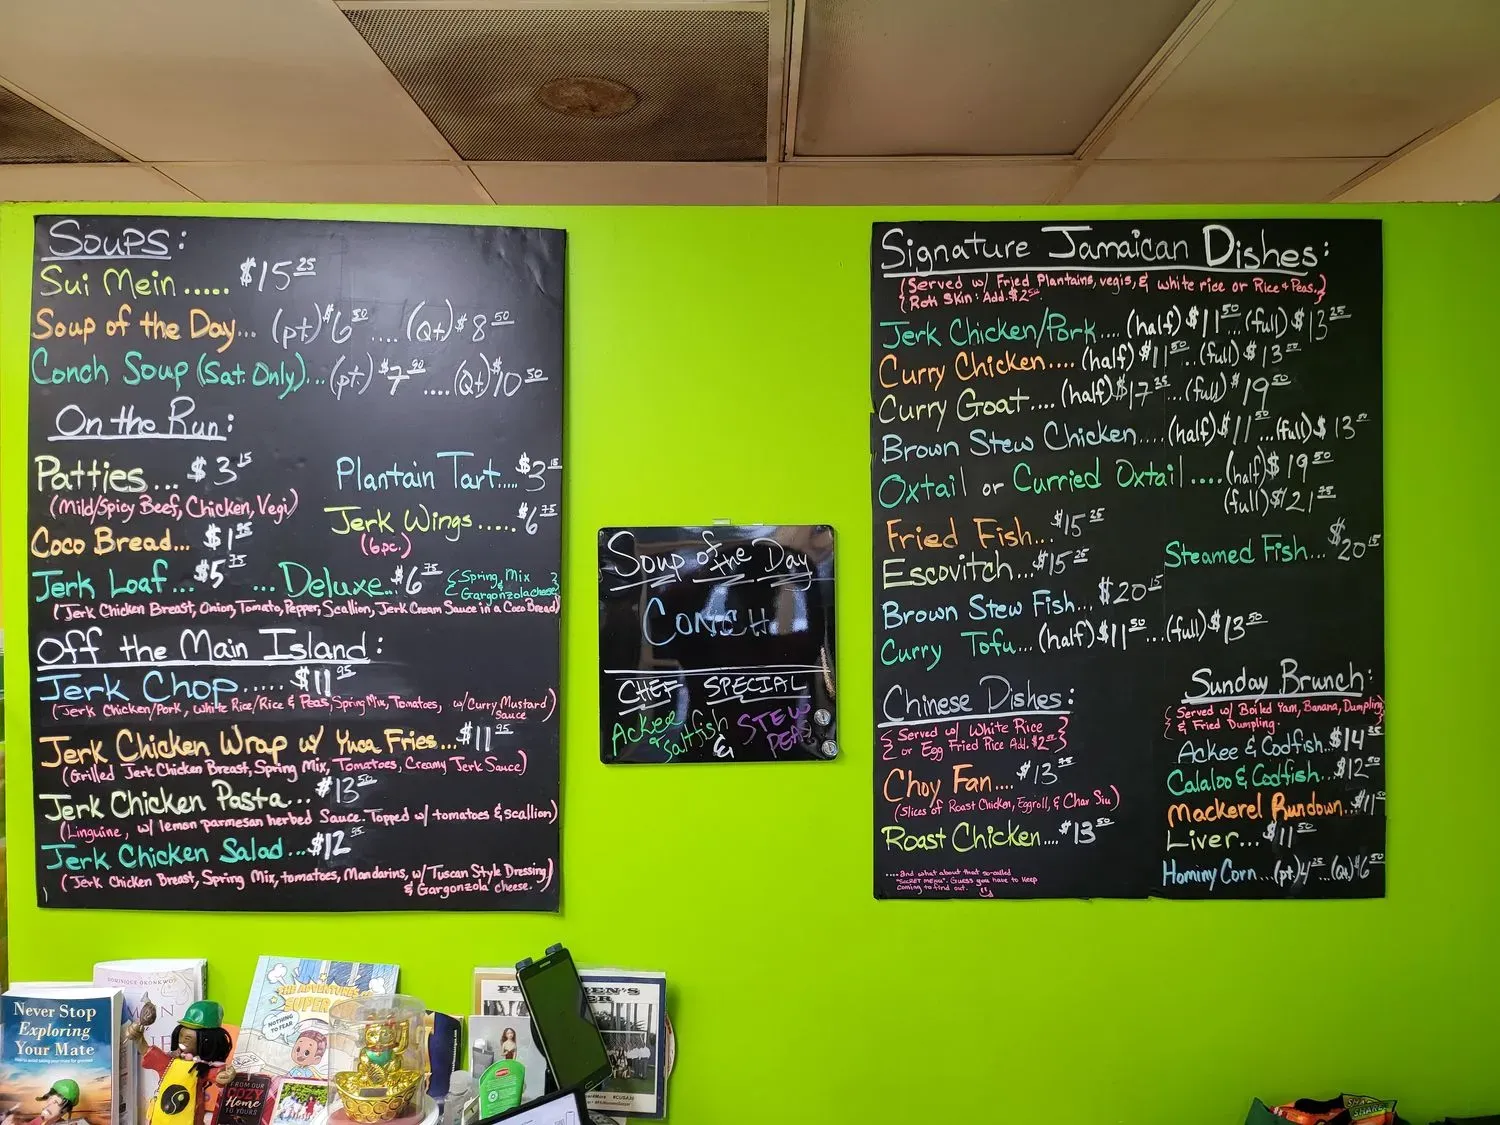 Soups:
Sui Mein ..... $15 25
Soup of the Day... (pt) $6 50 .... (Qt) $8 50
Conch Soup (Sat. Only)... (pt.) $7 90 ..... (Qt) $10 50
On the Run:
Patties... $3 15
(Mild/Spicy Beef, Chicken, Vegi)
Plantain Tart..... $3 15
Coco Bread... $1 95
Jerk Wings ..... $6 75
(6pc.)
Jerk Loaf... $5 75 ... Deluxe.. $6 75 {Spring Mix
Gargonzola cheese}
(Jerk Chicken Breast, Onion, Tomato, Pepper, Scallion, Jerk Cream Sauce in a Coco Bread)
Off the Main Island:
Jerk Chop ..... $11 95
(Jerk Chicken/Pork, White Rice/Rice & Peas, Spring Mix, Tomatoes, w/Curry Mustard
Sauce)
Jerk Chicken Wrap w/ Yuca Fries... $11 95
(Grilled Jerk Chicken Breast, Spring Mix, Tomatoes, Creamy Jerk Sauce)
Jerk Chicken Pasta... $13 50
(Linguine, w/ lemon parmesan herbed Sauce. Topped w/ tomatoes & scallion)
Jerk Chicken Salad ... $12 95
(Jerk Chicken Breast, Spring Mix, tomatoes, Mandarins, w/ Tuscan Style Dressing
& Gargonzola cheese.)
Soup of the Day
CONCH
CHEF SPECIAL
Ackee & Saltfish
&
STEW PEAS
Signature Jamaican Dishes:
(Served w/ Fried Plantains, vegis, & white rice or Rice & Peas.)
{Roti Skin: Add. $2
Jerk Chicken/Pork.... (half) $11 50 ... (full) $13 25
Curry Chicken.... (half) $11 50 .. (full) $13
Curry Goat.... (half) $17 25 ... (full) $19 50
Brown Stew Chicken.... (half) $11 50 ... (full) $13 50
Oxtail or Curried Oxtail .... (half) $19 50
(full) $21 75
Fried Fish... $15 25
Steamed Fish... $20 15
Escovitch... $15 25
Brown Stew Fish... $20 15
Curry Tofu... (half) $11 50 ... (full) $13 50
Chinese Dishes:
{Served w/ White Rice
or Egg Fried Rice Add. $2 }
Choy Fan.... $13 75
(Slices of Roast Chicken, Eggroll, & Char Siu)
Roast Chicken.... $13 50
.... and what about that so-called
"Secret menu". Guess you have to keep
coming to find out.
Sunday Brunch:
{Served w/ Boiled Yam, Banana, Dumpling
& Fried Dumpling.
Ackee & Codfish.. $14 25
Calaloo & Codfish... $12 50
Mackerel Rundown... $11 50
Liver... $11 50
Hominy Corn... (pt.) 4 25 ... (Qt) $6 50
Never Stop
Exploring
Your Mate
DOMINIQUE OKONKWO
THE ADVENTURES OF
SUPER
NOTHING
TO FEAR
FROM OUR
COZY
Home
TO YOURS